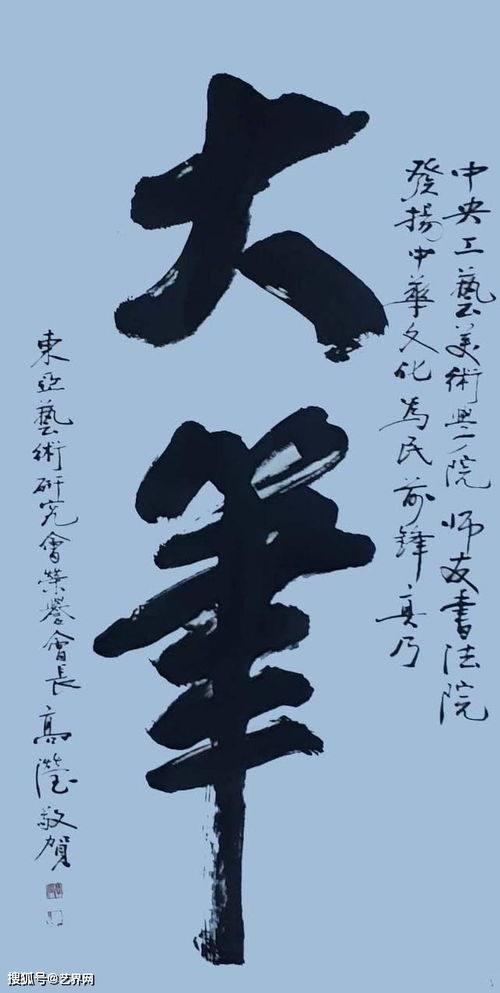 中央工藝美術學院 师友書法院
發揚中華文化為民前鋒真乃
大筆
東亞藝術研究會榮譽會長高瀅敬賀
搜狐号@艺界网